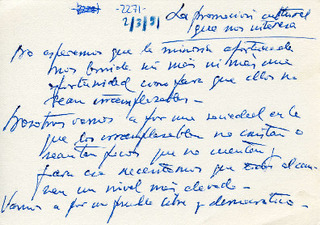 -2271-
2/3/91
La promoción cultural
que nos interesa
No esperemos que la minoría afortunada
nos brinde ni más ni más una
oportunidad como para que ellos no
sean irremplazables -
Nosotros vamos a por una sociedad en la
que los irremplazables no existan o
sean tan pocos que no cuenten!
para eso necesitamos que todos alcan-
cen un nivel más elevado -
Vamos a por un pueblo libre y democrático -